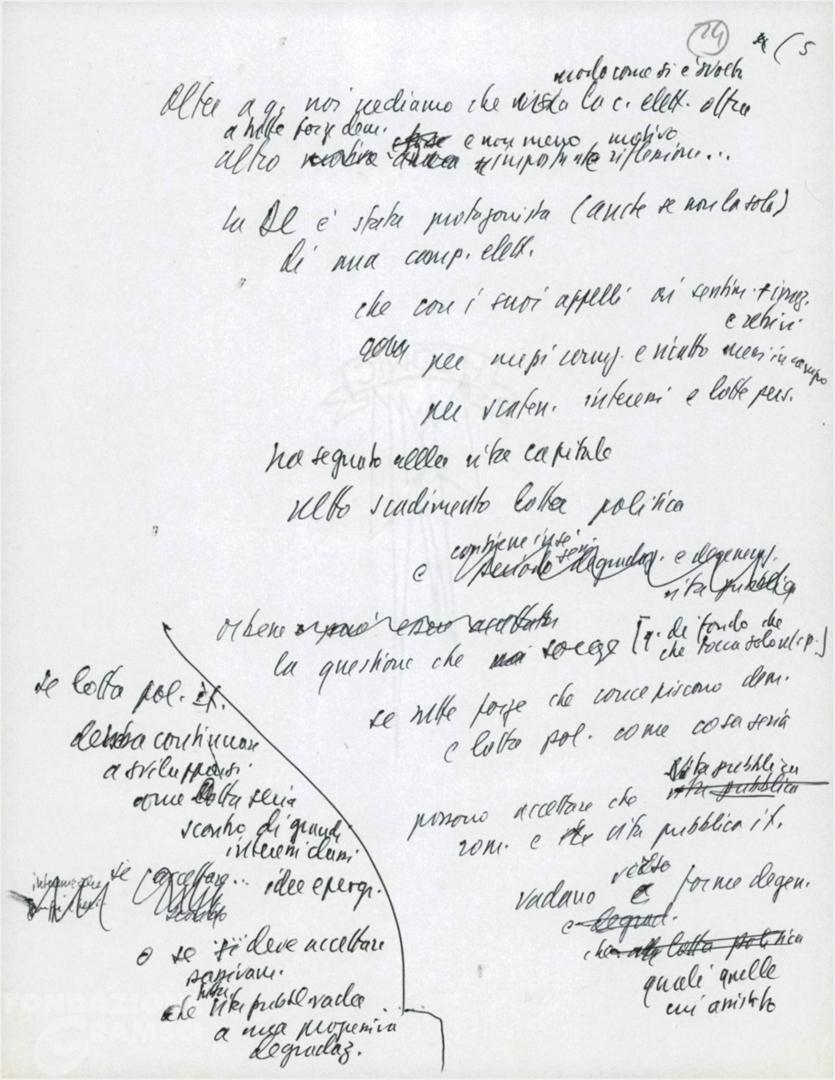 24
( 5
modo come si è svolta
Oltre a q. noi vediamo che la c. elett. oltre
a tutte forze dem. e non meno motivo
altro importante riflessione...
La DC è stata protagonista (anche se non la sola)
di una camp. elett.
che con i suoi appelli ai sentim. +
e retrivi
per mezzi e ricatto messi in campo
per scaten. interessi e lotte pers.
ha segnato nella vita capitale
netto scadimento lotta politica
contiene in sé
e degradaz. e degeneraz.
vita pubblica
Orbene
la questione che sorge [q. di fondo che
che tocca solo
se tutte forze che concepiscono dem.
e lotta pol. come cosa seria
possono accettare che vita pubblica
rom. e vita pubblica it.
vadano verso forme degen.
e degrad.
che lotta politica
quali quelle
cui assistito
se lotta pol. it.
debba continuare
a svilupparsi
come lotta seria
scontro di grandi
interessi
se accettare... idee e
o se si deve accettare
che vita pubbl vada
a una progressiva
degradaz.
FONDAZIONE
GRAMSCI